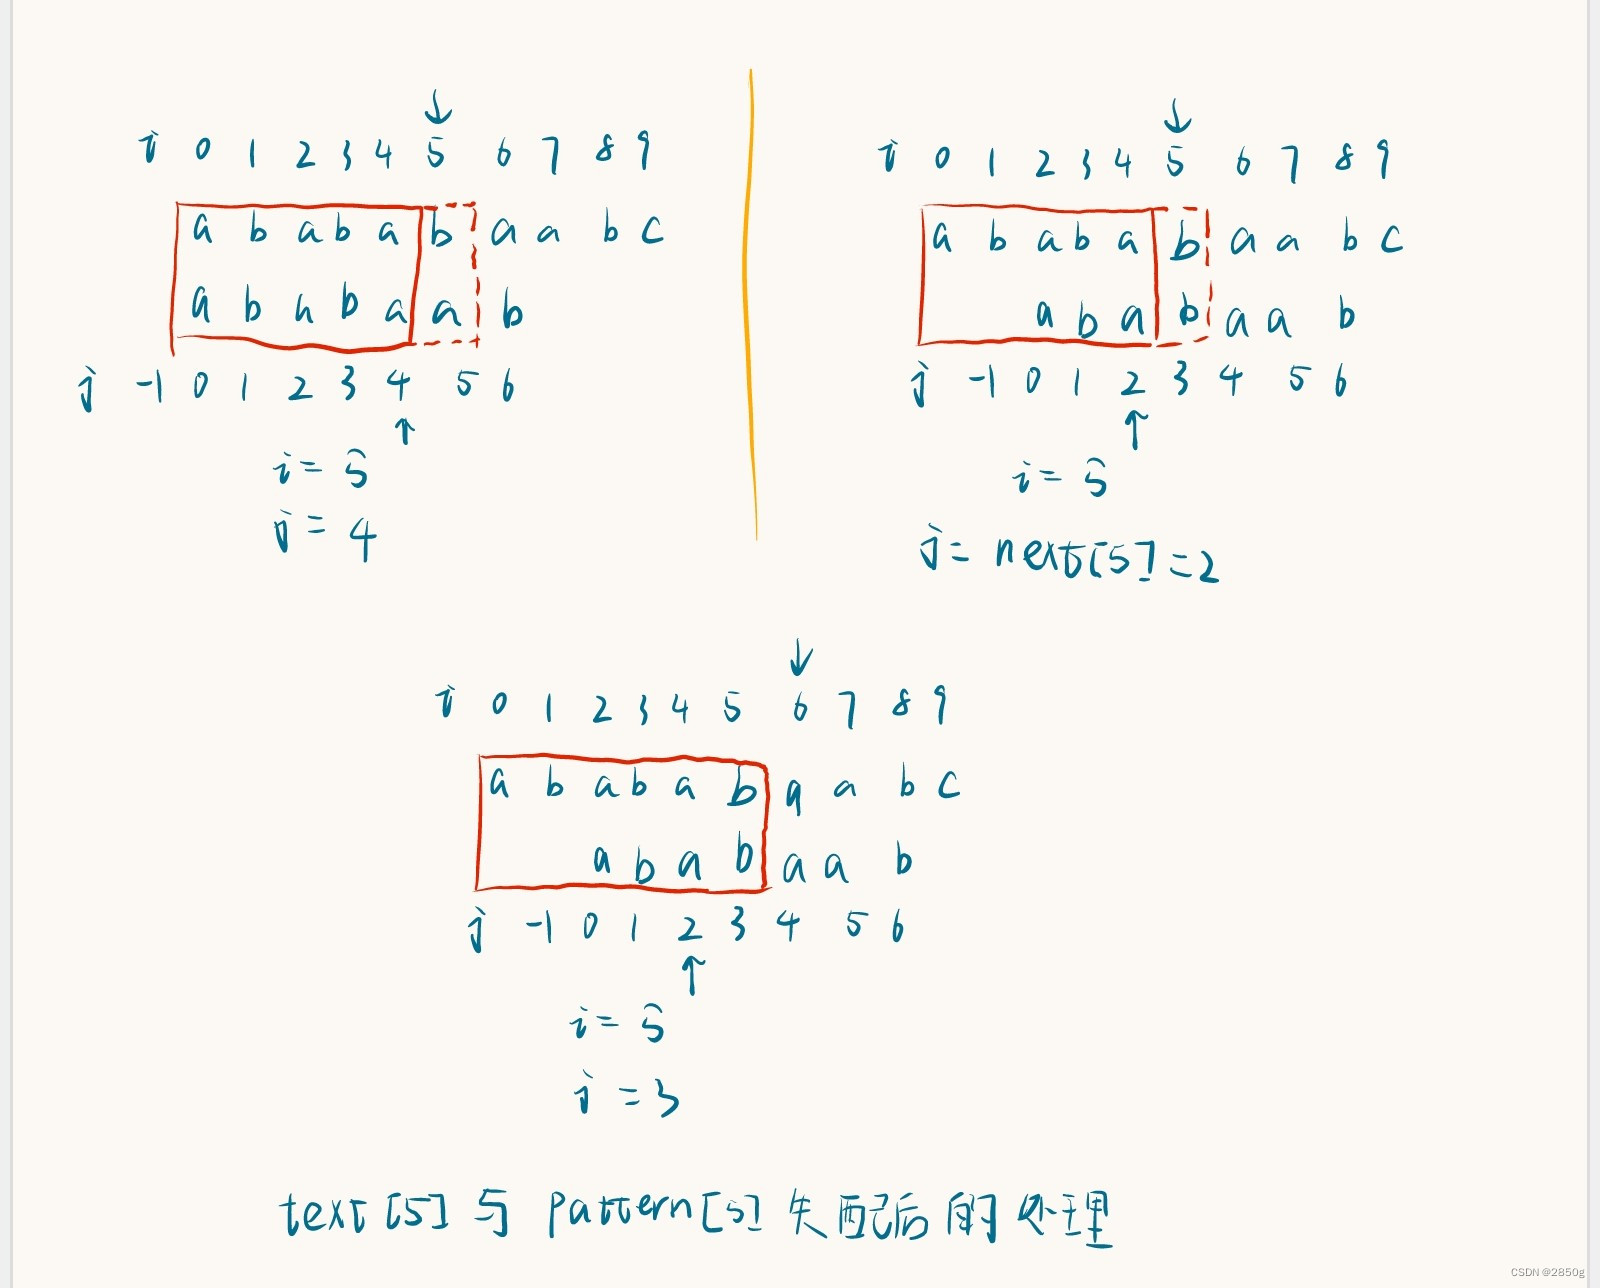 i 0 1 2 3 4 5 6 7 8 9
a b a b a b a a b c
a b a b a a b
j -1 0 1 2 3 4 5 6
i = 5
j = 4
i 0 1 2 3 4 5 6 7 8 9
a b a b a b a a b c
a b a b a a b
j -1 0 1 2 3 4 5 6
i = 5
j = next[5] = 2
i 0 1 2 3 4 5 6 7 8 9
a b a b a b a a b c
a b a b a a b
j -1 0 1 2 3 4 5 6
i = 5
j = 3
text[5] 与 pattern[5] 失配后的处理
CSDN @2850g